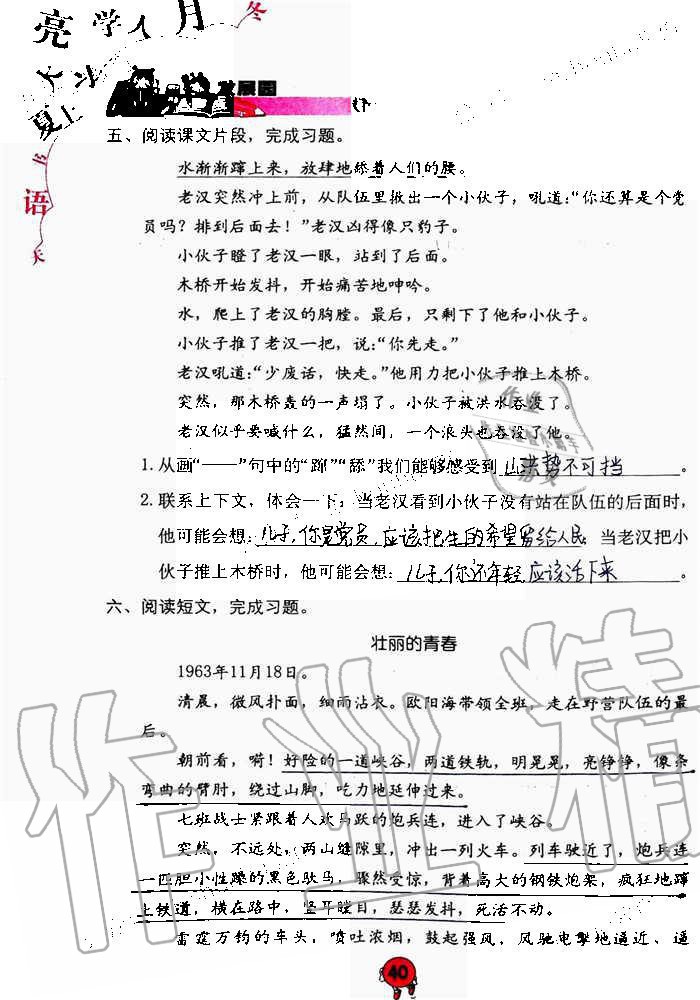 冬
亮学人月
夏上
语
天
展园
五、阅读课文片段，完成习题。
水渐渐蹿上来，放肆地舔着人们的腰。
老汉突然冲上前，从队伍里揪出一个小伙子，吼道：“你还算是个党
员吗？排到后面去！”老汉凶得像只豹子。
小伙子瞪了老汉一眼，站到了后面。
木桥开始发抖，开始痛苦地呻吟。
水，爬上了老汉的胸膛。最后，只剩下了他和小伙子。
小伙子推了老汉一把，说：“你先走。”
老汉吼道：“少废话，快走。”他用力把小伙子推上木桥。
突然，那木桥轰的一声塌了。小伙子被洪水吞没了。
老汉似乎要喊什么，猛然间，一个浪头也吞没了他。
1. 从画“——”句中的“蹿”“舔”我们能够感受到 山洪势不可挡 。
2. 联系上下文，体会一下：当老汉看到小伙子没有站在队伍的后面时，
他可能会想：儿子，你是党员，应该把生的希望留给人民；当老汉把小
伙子推上木桥时，他可能会想：儿子，你还年轻 应该活下来 。
六、阅读短文，完成习题。
壮丽的青春
1963年11月18日。
清晨，微风扑面，细雨沾衣。欧阳海带领全班，走在野营队伍的最
后。
朝前看，嗬！好险的一道峡谷，两道铁轨，明晃晃，亮铮铮，像条
弯曲的臂肘，绕过山脚，吃力地延伸过来。
七班战士紧跟着人欢马跃的炮兵连，进入了峡谷。
突然，不远处，两山缝隙里，冲出一列火车。列车驶近了，炮兵连
一匹胆小性躁的黑色驮马，骤然受惊，背着高大的钢铁炮架，疯狂地蹿
上铁道，横在路中，竖耳瞠目，瑟瑟发抖，死活不动。
雷霆万钧的车头，喷吐浓烟，鼓起强风，风驰电掣地逼近、逼
40
作业精